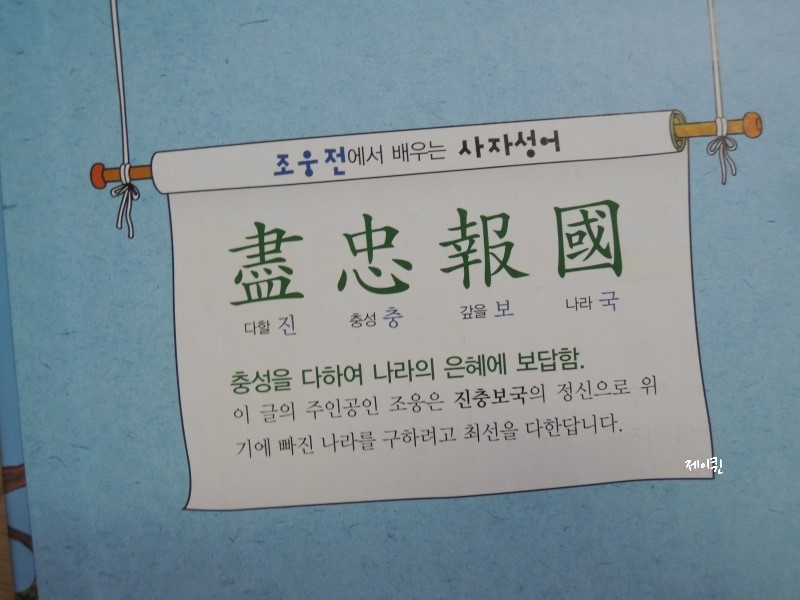 조웅전에서 배우는 사자성어
盡忠報國
다할 진 충성 충 갚을 보 나라 국
충성을 다하여 나라의 은혜에 보답함.
이 글의 주인공인 조웅은 진충보국의 정신으로 위
기에 빠진 나라를 구하려고 최선을 다한답니다.
제이퀸